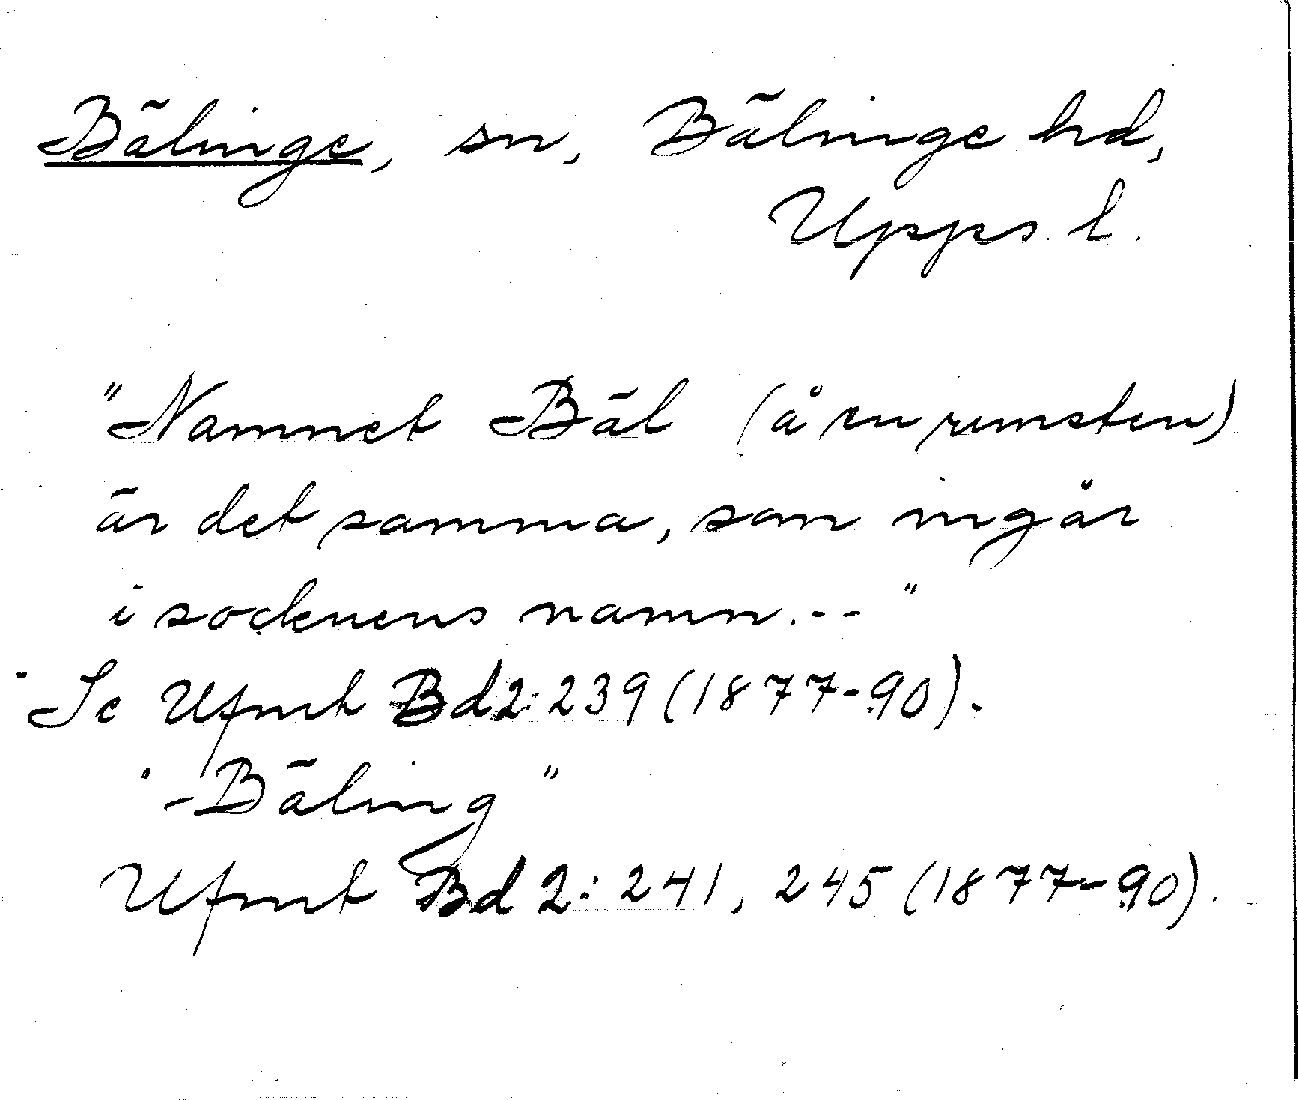 Bälinge, sn, Bälinge hd,
Upps. l.
"Namnet Bäl (å en runsten)
är det samma, som ingår
i socknens namn.--"
Se Ufmt Bd 2: 239 (1877-90).
"-Bäling"
Ufmt Bd 2: 241, 245 (1877-90).